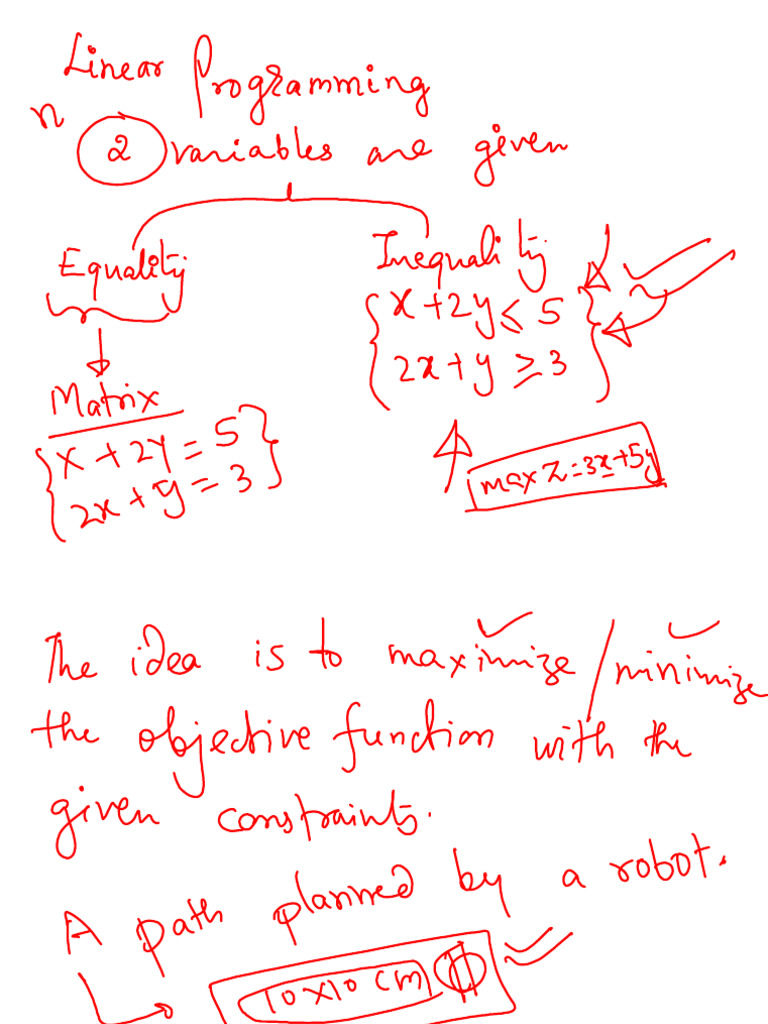 Linear Programming
n
2 variables are given
Equality
Inequality
x + 2y ≤ 5
2x + y ≥ 3
Matrix
x + 2y = 5
2x + y = 3
max Z = 3x + 5y
The idea is to maximize / minimize
the objective function with the
given constraints.
A path planned by a robot.
10 x 10 cm